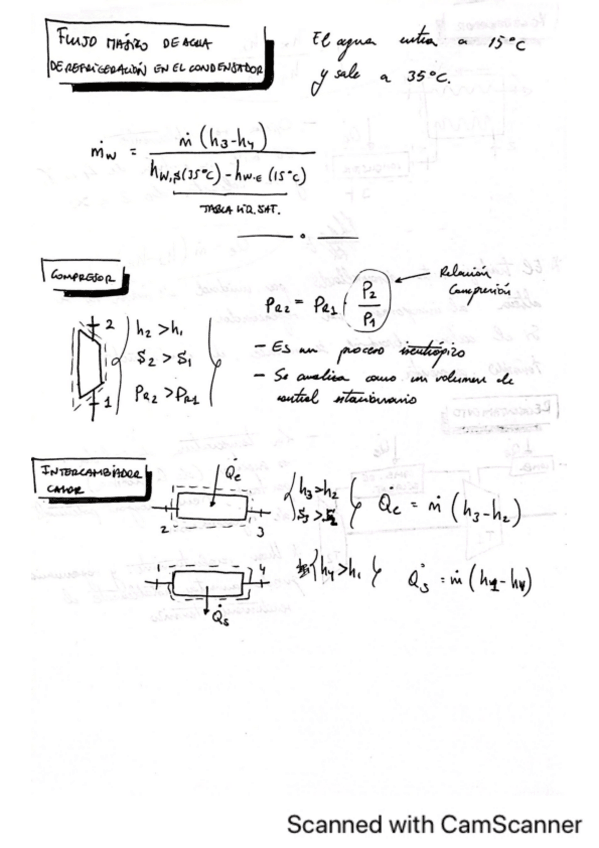 FLUJO MÁSICO DE AGUA
DE REFRIGERACIÓN EN EL CONDENSADOR
El agua entra a 15°C
y sale a 35°C.
ṁw = ṁ (h3-h4) / hw,s(35°C) - hw.e (15°C)
TABLA LIQ. SAT.
COMPRESOR
2
1
h2 > h1
S2 > S1
PR2 > PR1
PR2 = PR1 · P2/P1
Relación
Compresión
- Es un proceso isentrópico
- Se analiza como un volumen de
control estacionario
INTERCAMBIADOR
CALOR
Q̇e
2
3
h3 > h2
S3 > S2
Q̇e = ṁ (h3-h2)
1
4
Q̇s
h4 > h1
Q̇s = ṁ (h1-h4)
Scanned with CamScanner